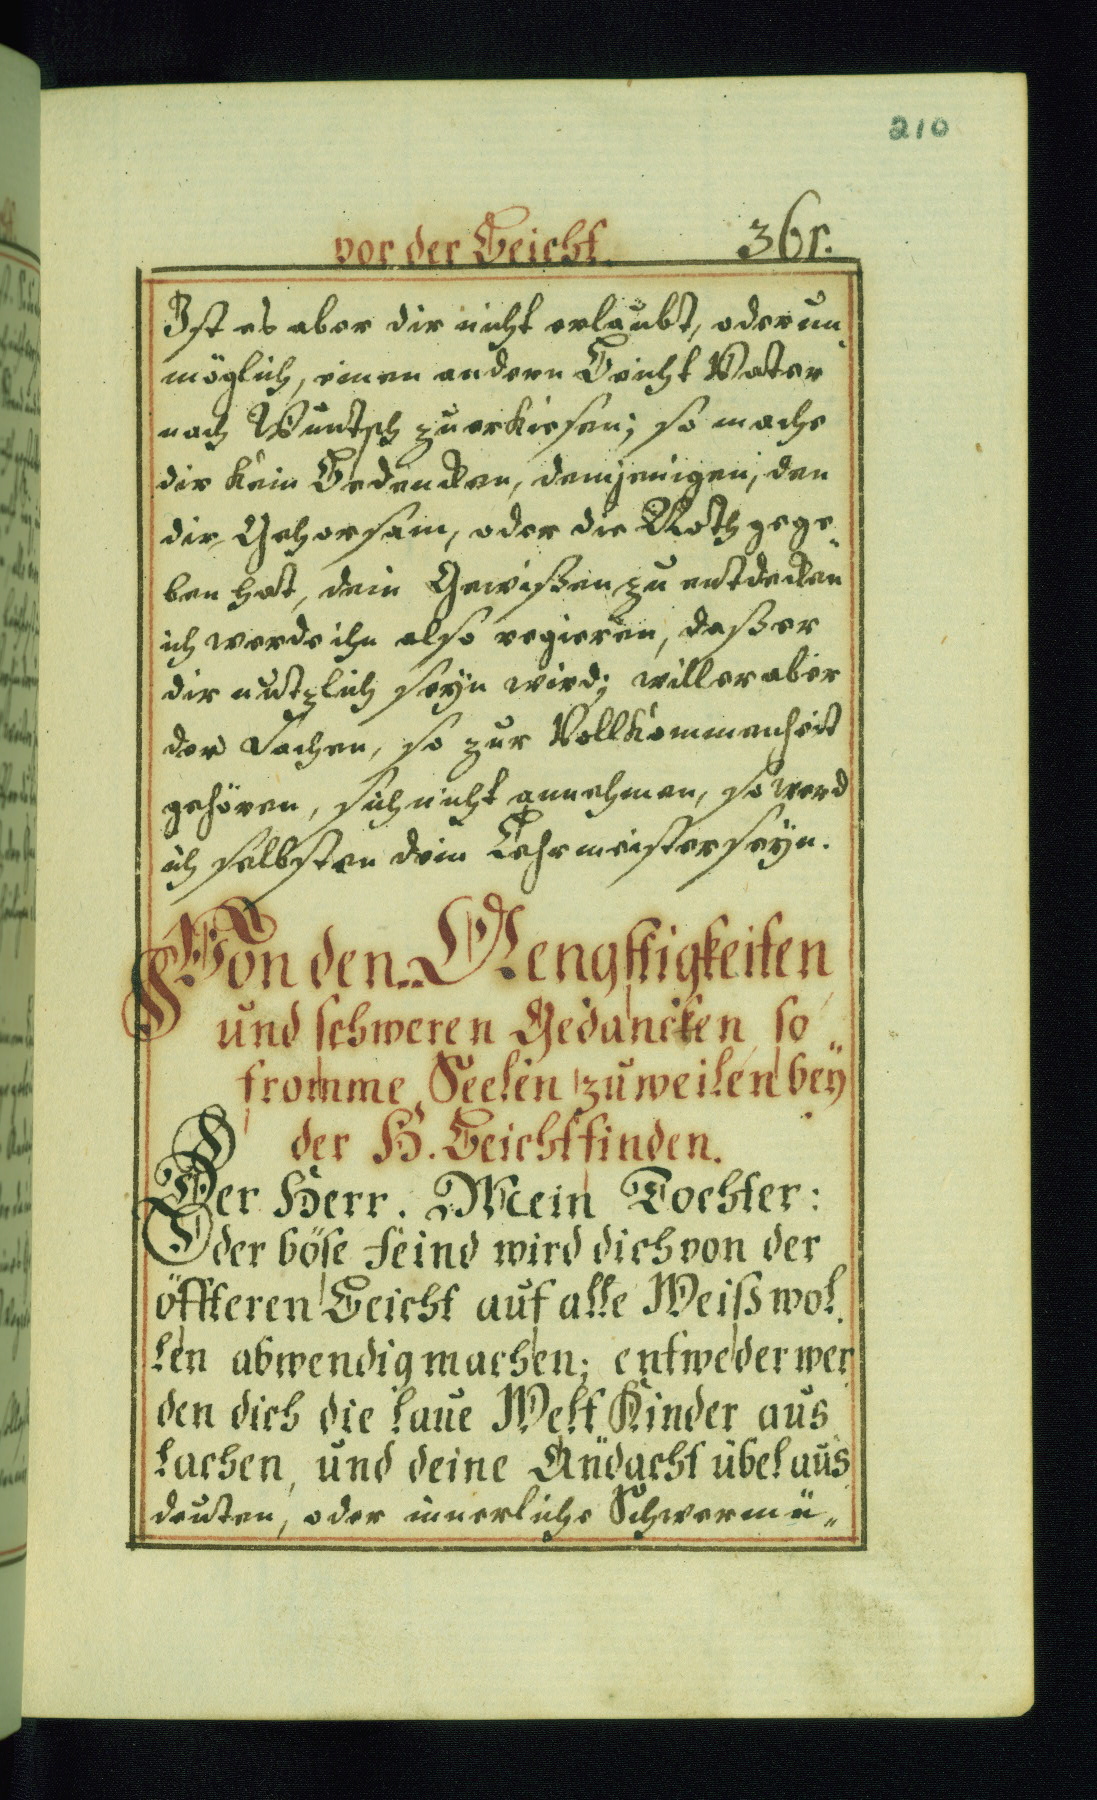 210
vor der Beicht. 361.
Ist es aber dir nicht erlaubt, oder un„
möglich, einen andern Beicht Vater
nach Wuntsch zu erkiesen; so mache
dir kein Bedencken, demjenigen, den
dir Gehorsam, oder die Noth gege„
ben hat, dein Gewißen zu entdecken
ich werde ihn also regieren, daß er
dir nutzlich seyn wird; will er aber
der Sachen, so zur Vollkommenheit
gehören, sich nicht annehmen, so werd
ich selbsten dein Lehrmeister seyn.
Von den Aengstigkeiten
und schweren Gedancken so
fromme Seelen zuweilen bey
der H. Beicht finden.
Der Herr. Mein Tochter:
der böse feind wird dich von der
öffteren Beicht auf alle Weiß wol„
len abwendig machen; entweder wer
den dich die laue Welt Kinder aus
lachen, und deine Andacht übel aus
deuten, oder innerliche Schwermü„